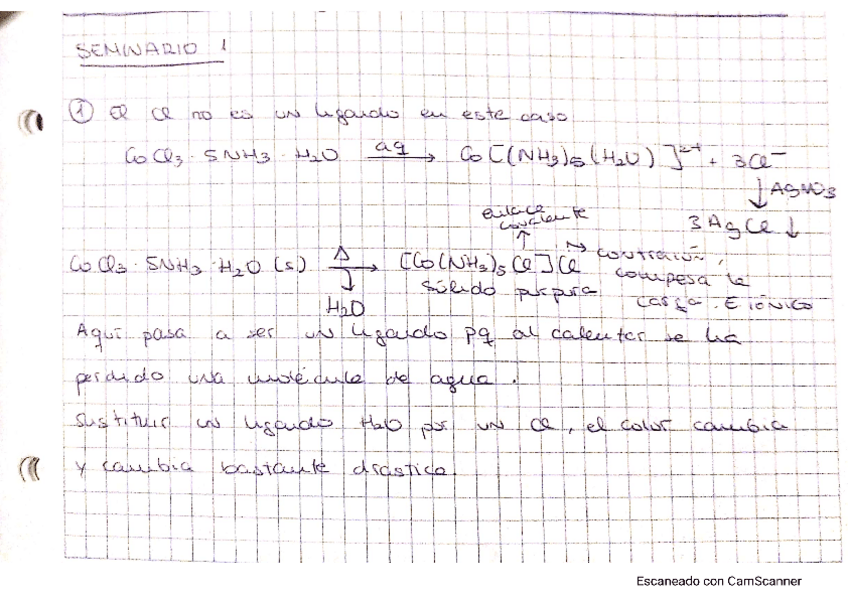 SEMINARIO 1
① El Cl no es un ligando en este caso
CoCl₃ · 5NH₃ · H₂O —aq→ Co[(NH₃)₅(H₂O)]²⁺ + 3Cl⁻
↓ AgNO₃
3 AgCl ↓
enlace
covalente
↑
CoCl₃ · 5NH₃ · H₂O (s) —Δ→ [Co(NH₃)₅Cl]Cl → contraión,
compesa la
carga. E iónico
↓
H₂O
Sólido púrpura
Aquí pasa a ser un ligando pq al calentar se ha
perdido una molécula de agua.
Sustituir un ligando H₂O por un Cl, el color cambia
y cambia bastante drástica
Escaneado con CamScanner